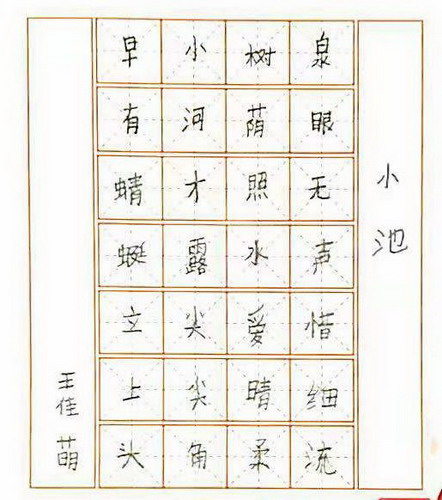 小池
泉眼无声惜细流
树荫照水爱晴柔
小河才露尖尖角
早有蜻蜓立上头
王佳萌